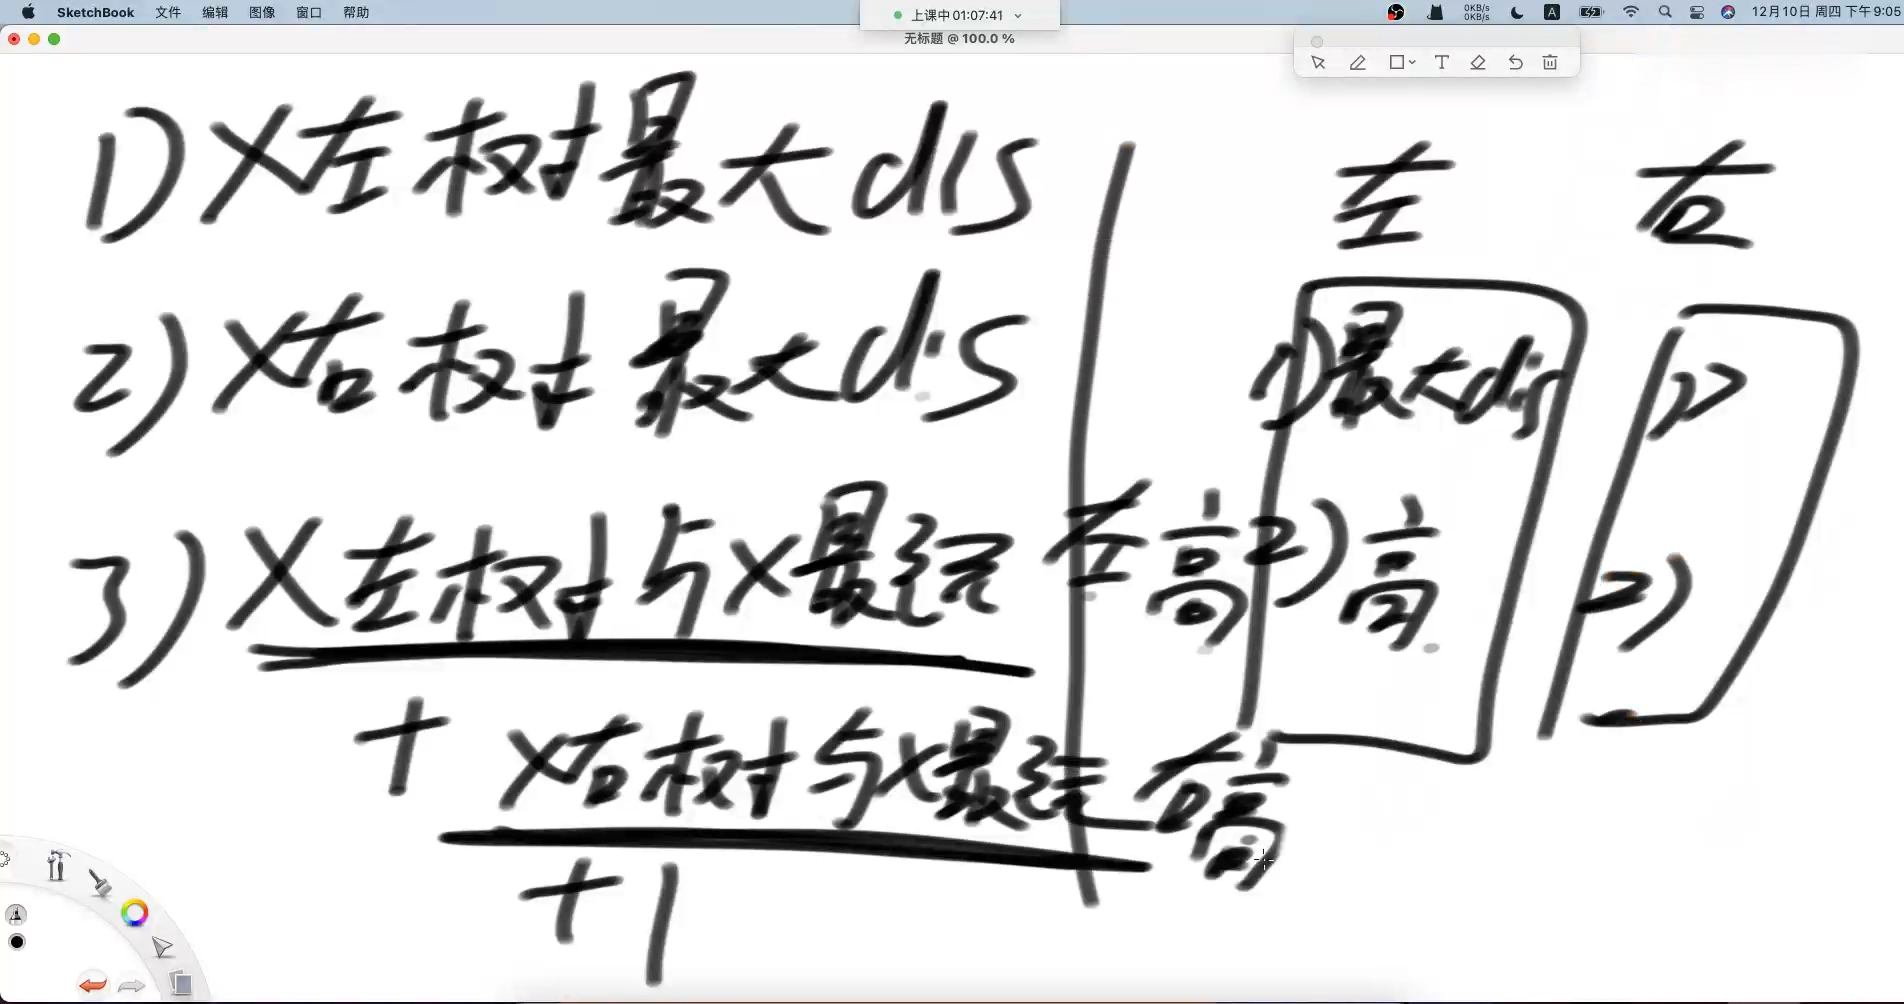 SketchBook 文件 编辑 图像 窗口 帮助
上课中 01:07:41
0KB/s
0KB/s
A
12月10日 周四 下午9:05
无标题 @ 100.0 %
T
1) X左树最大dis
2) X右树最大dis
3) X左树与X最远 左高
+ X右树与X最远 右高
+1
左 右
1) 最大dis 1)
2) 高 2)